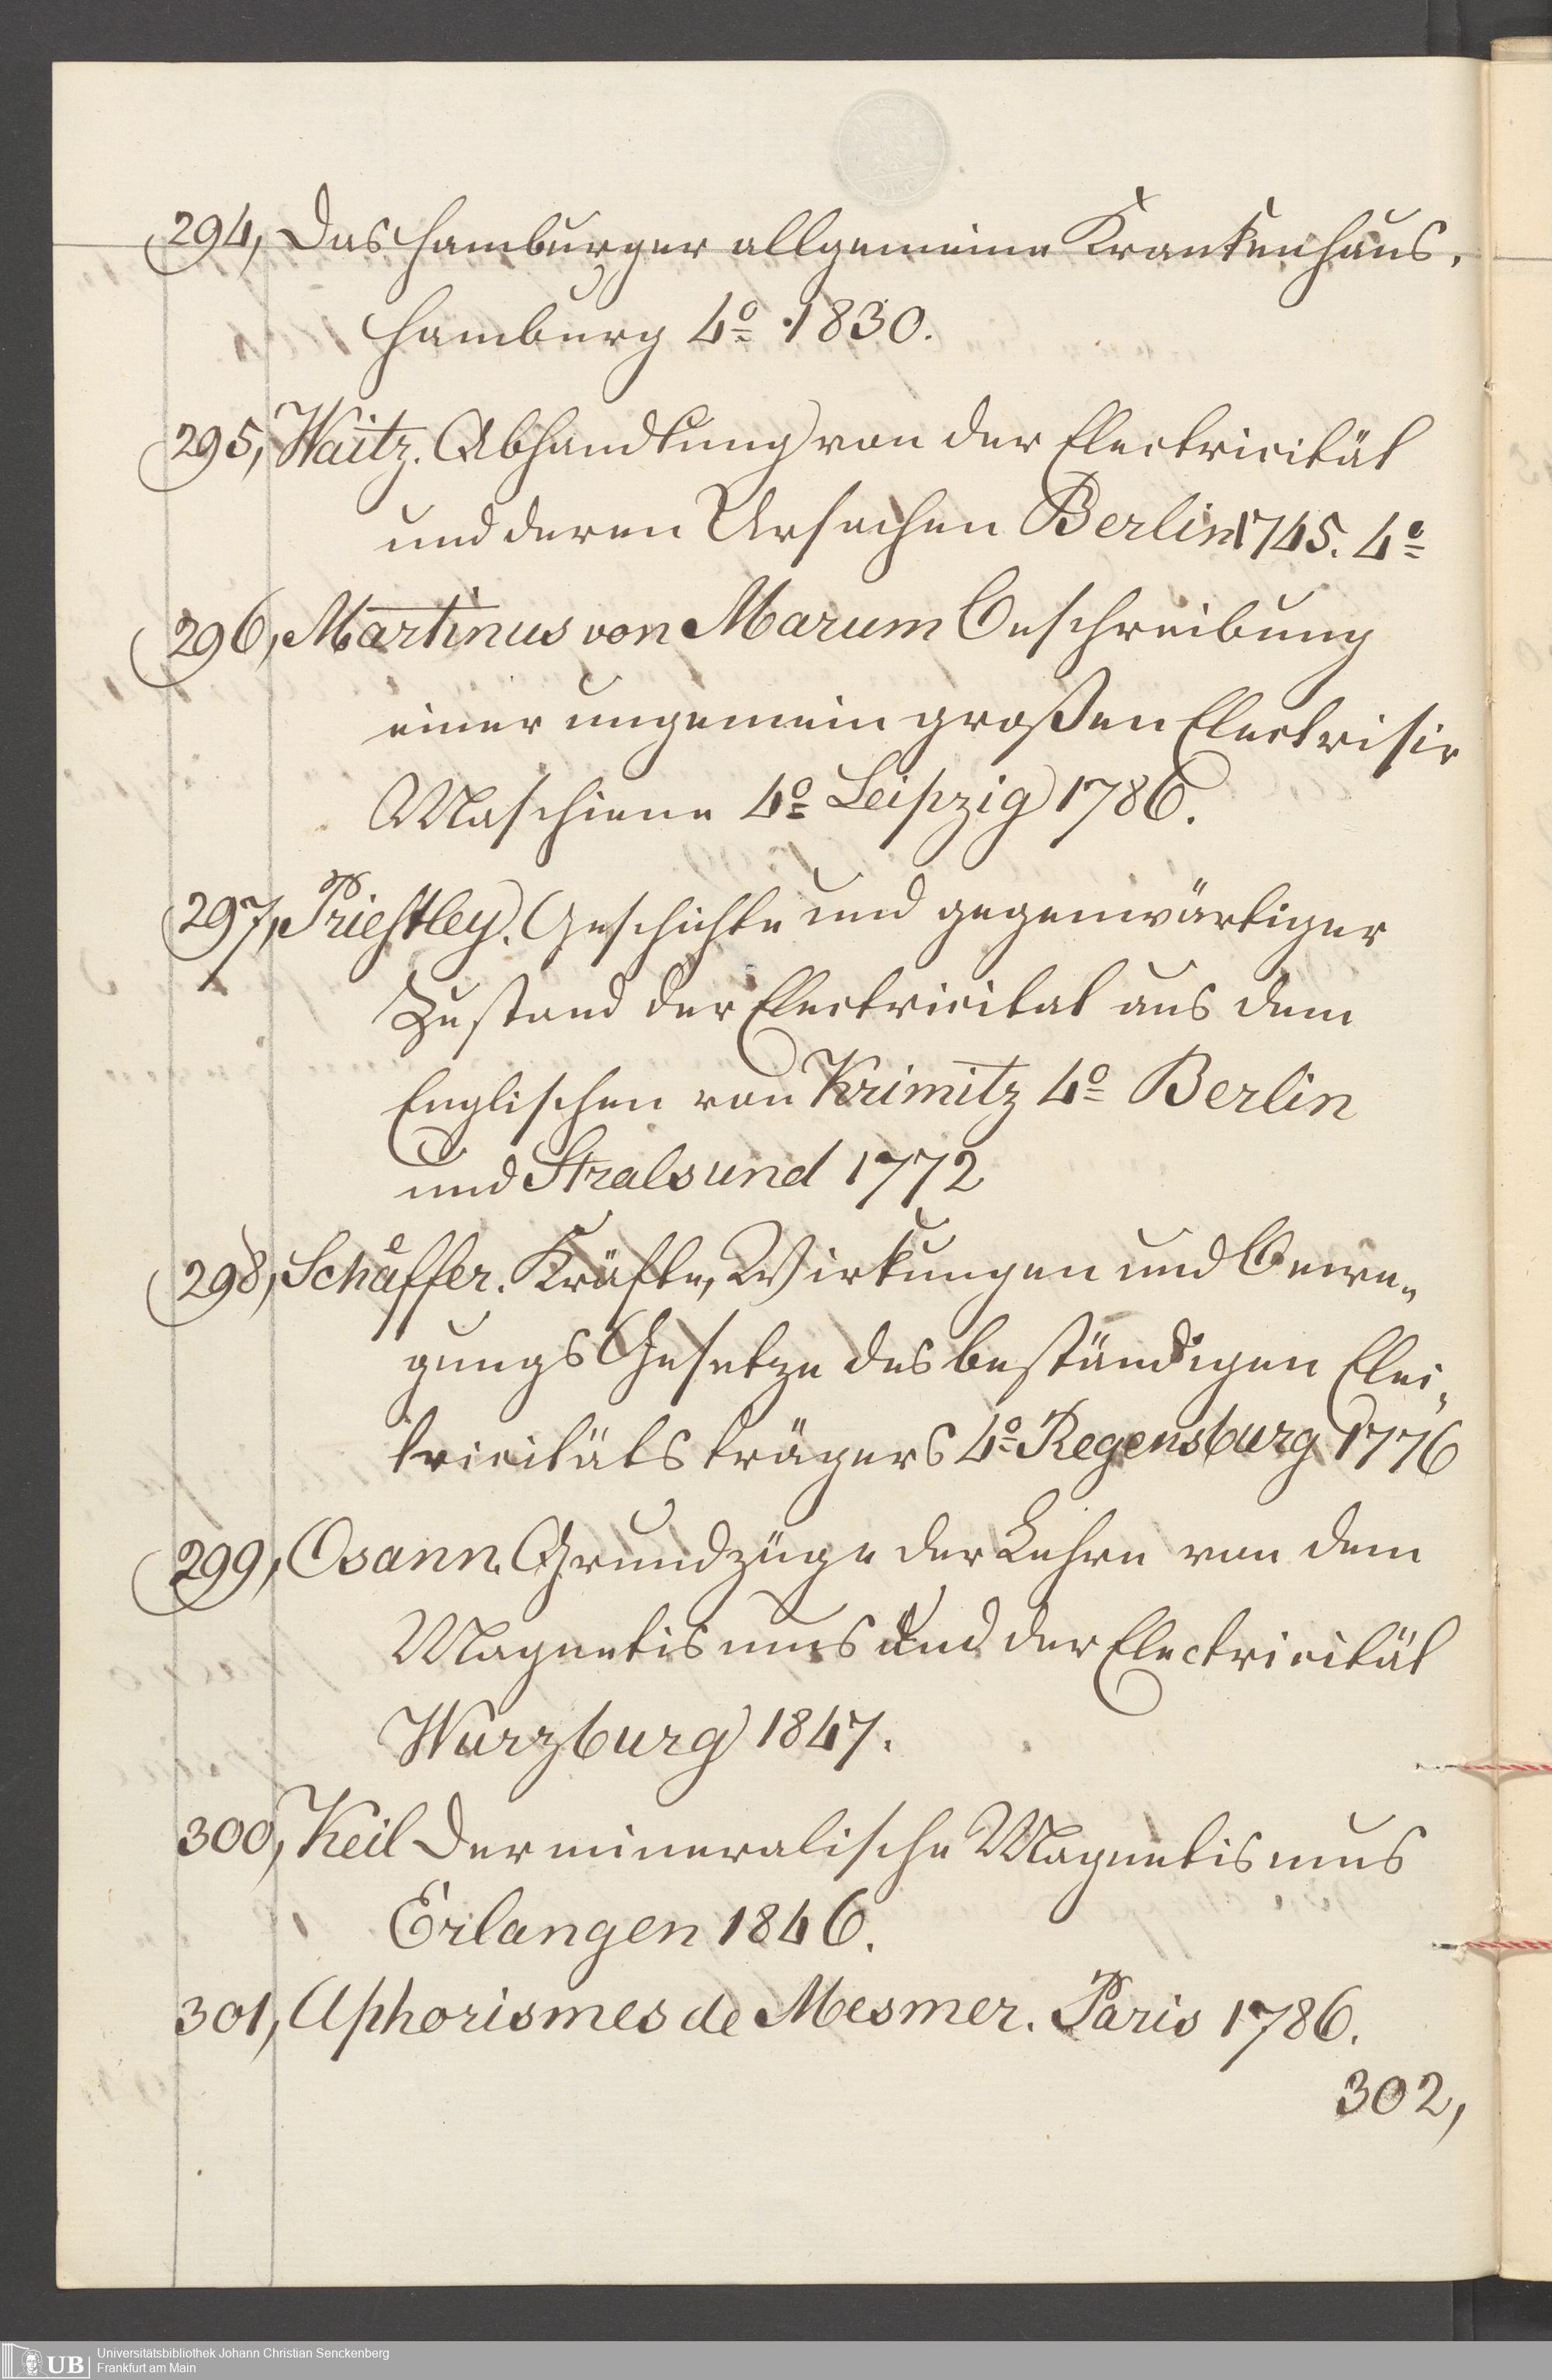 294, Das Hamburger allgemeine Krankenhaus.
Hamburg 4º 1830.
295, Waitz. Abhandlung von der Electricität
und deren Ursachen Berlin 1745. 4º
296, Martinus von Marum Beschreibung
einer ungemein großen Electrisir
Maschiene 4º Leipzig 1786.
297, Priestley. Geschichte und gegenwärtiger
Zustand der Electricitat aus dem
Englischen von Krünitz 4º Berlin
und Stralsund 1772
298, Schäffer. Kräfte, Wirkungen und Bewe„
gungs Gesetze des beständigen Elec„
tricitätsträgers 4º Regensburg 1776
299, Osann. Grundzüge der Lehre von dem
Magnetismus und der Electricität
Würzburg 1847.
300, Keil Der mineralische Magnetismus
Erlangen 1846.
301, Aphorismes de Mesmer. Paris 1786.
302,
UB
Universitätsbibliothek Johann Christian Senckenberg
Frankfurt am Main